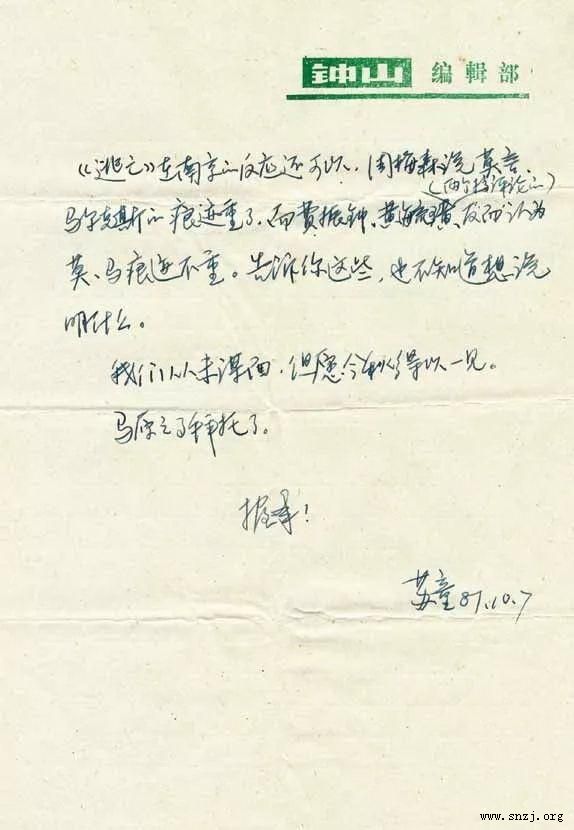 钟山 编辑部
《逃亡》在南京的反应还可以，周梅森说莫言
（两个搞评论的）
马尔克斯的痕迹重了，而费振钟、黄毓璜反而认为
莫、马痕迹不重。告诉你这些，也不知道想说
明什么。
我们从未谋面，但愿今秋得以一见。
马原之事拜托了。
握手！
苏童 87.10.7
www.snzj.org